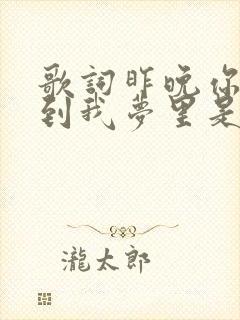 歌詞昨晚你
到我夢里是
瀧太郎